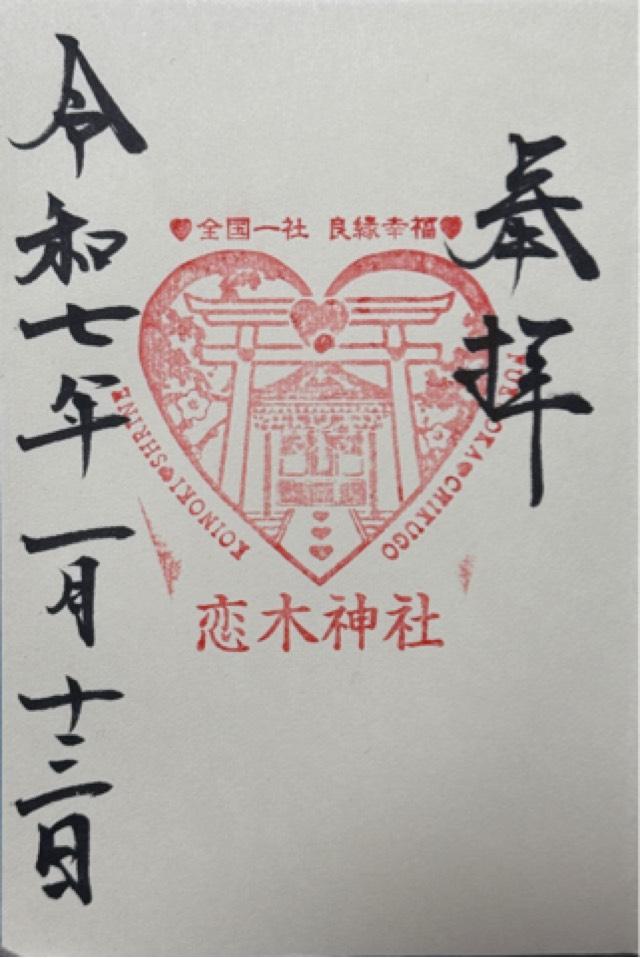 奉拝
♥全国一社 良縁幸福♥
FUKUOKA♥CHIKUGO
KOINOKI♥SHRINE
恋木神社
令和七年一月十三日